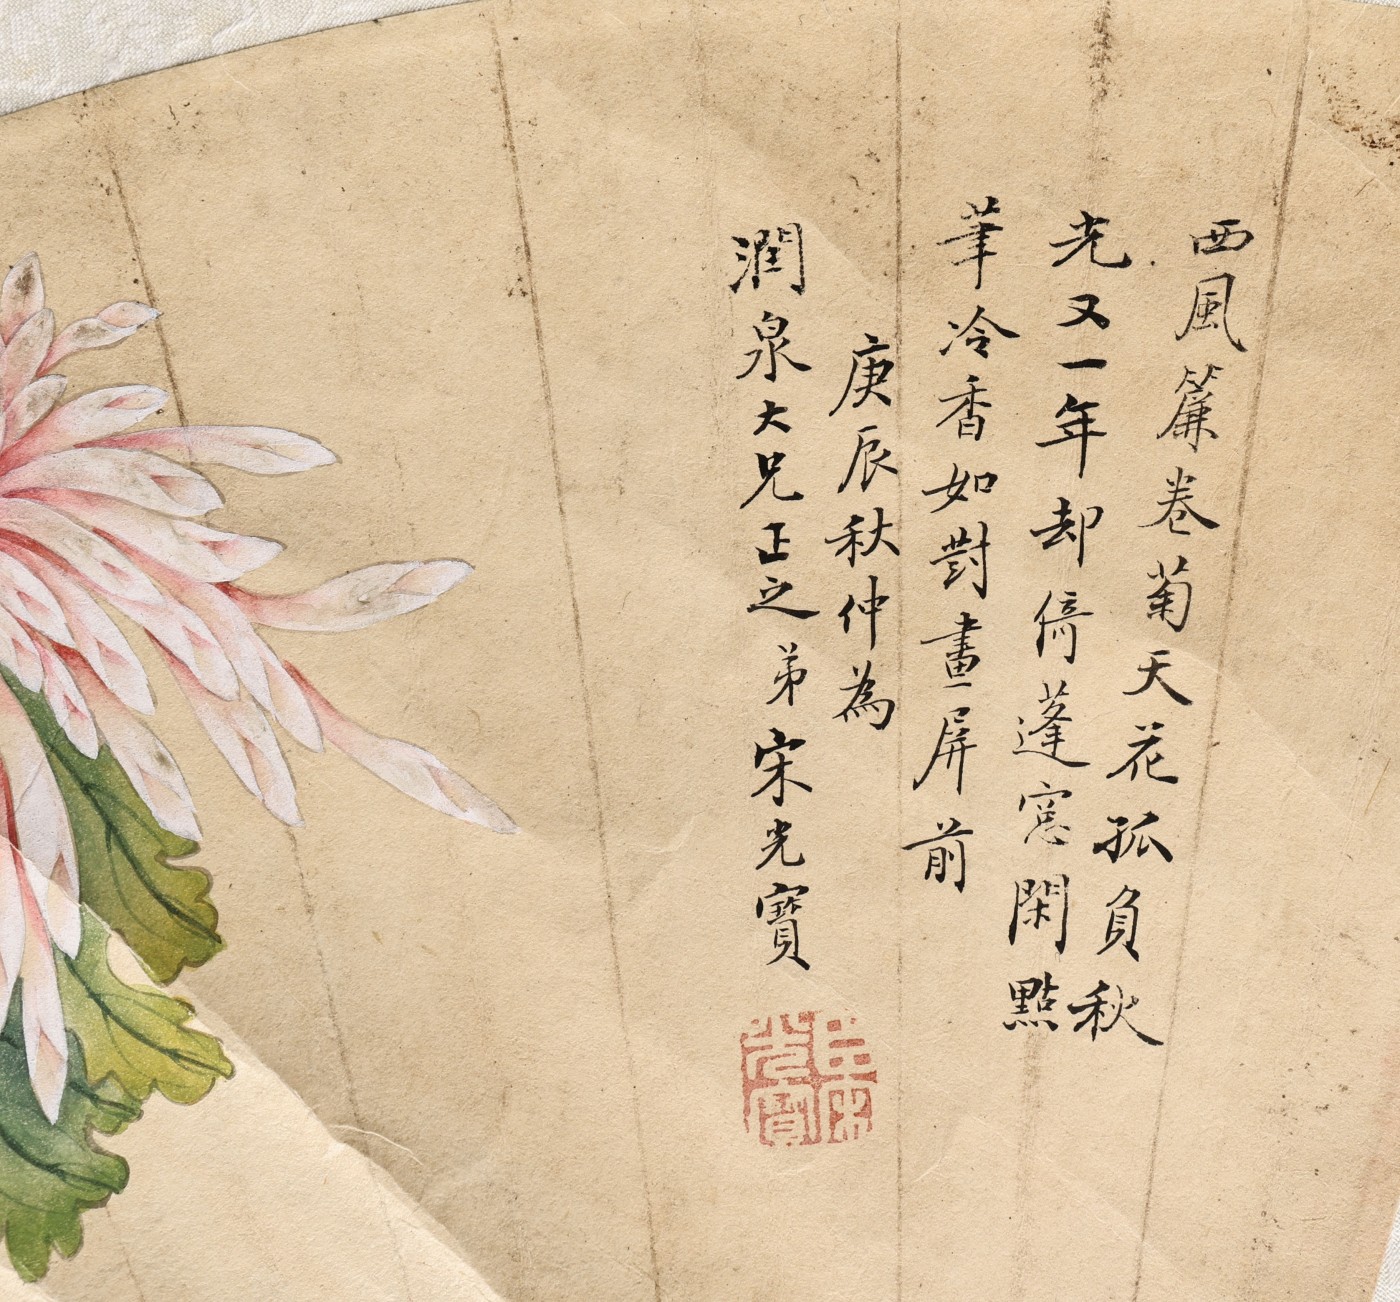 西風簾卷菊天花孤負秋
光又一年却倚蓬窓閑點
筆冷香如對畫屏前
庚辰秋仲為
潤泉大兄正之弟宋光寶